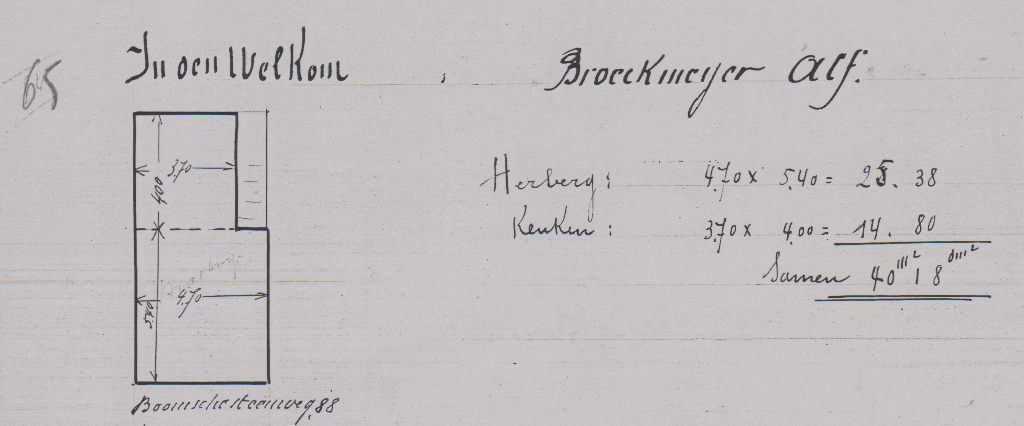 65
In den Welkom
Broeckmeyer Alf.
3.70
4.00
4.70
5.40
Boomschesteenweg, 88
Herberg: 4.70 x 5.40 = 25. 38
Keuken: 3.70 x 4.00 = 14. 80
Samen 40m² 18dm²